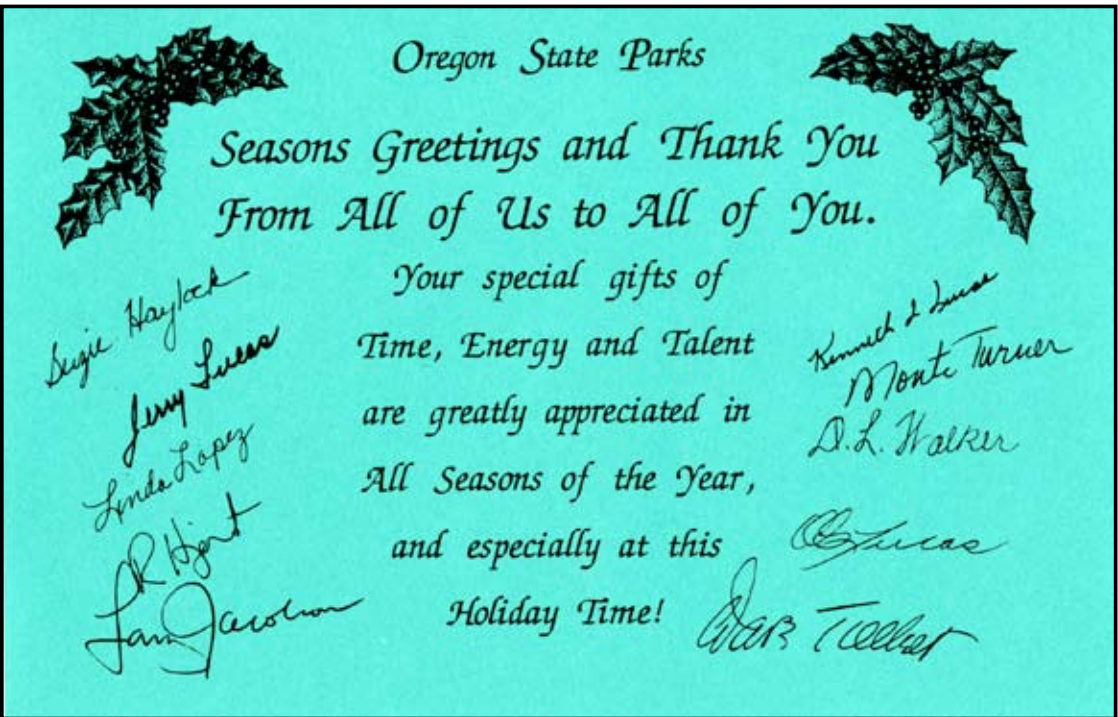 Oregon State Parks
Seasons Greetings and Thank You
From All of Us to All of You.
Your special gifts of
Time, Energy and Talent
are greatly appreciated in
All Seasons of the Year,
and especially at this
Holiday Time!
Suzie Haylock
Jerry Lucas
Linda Lopez
Hjort
Jacobson
Kenneth J Lucas
Monte Turner
D. L. Walker
Lucas